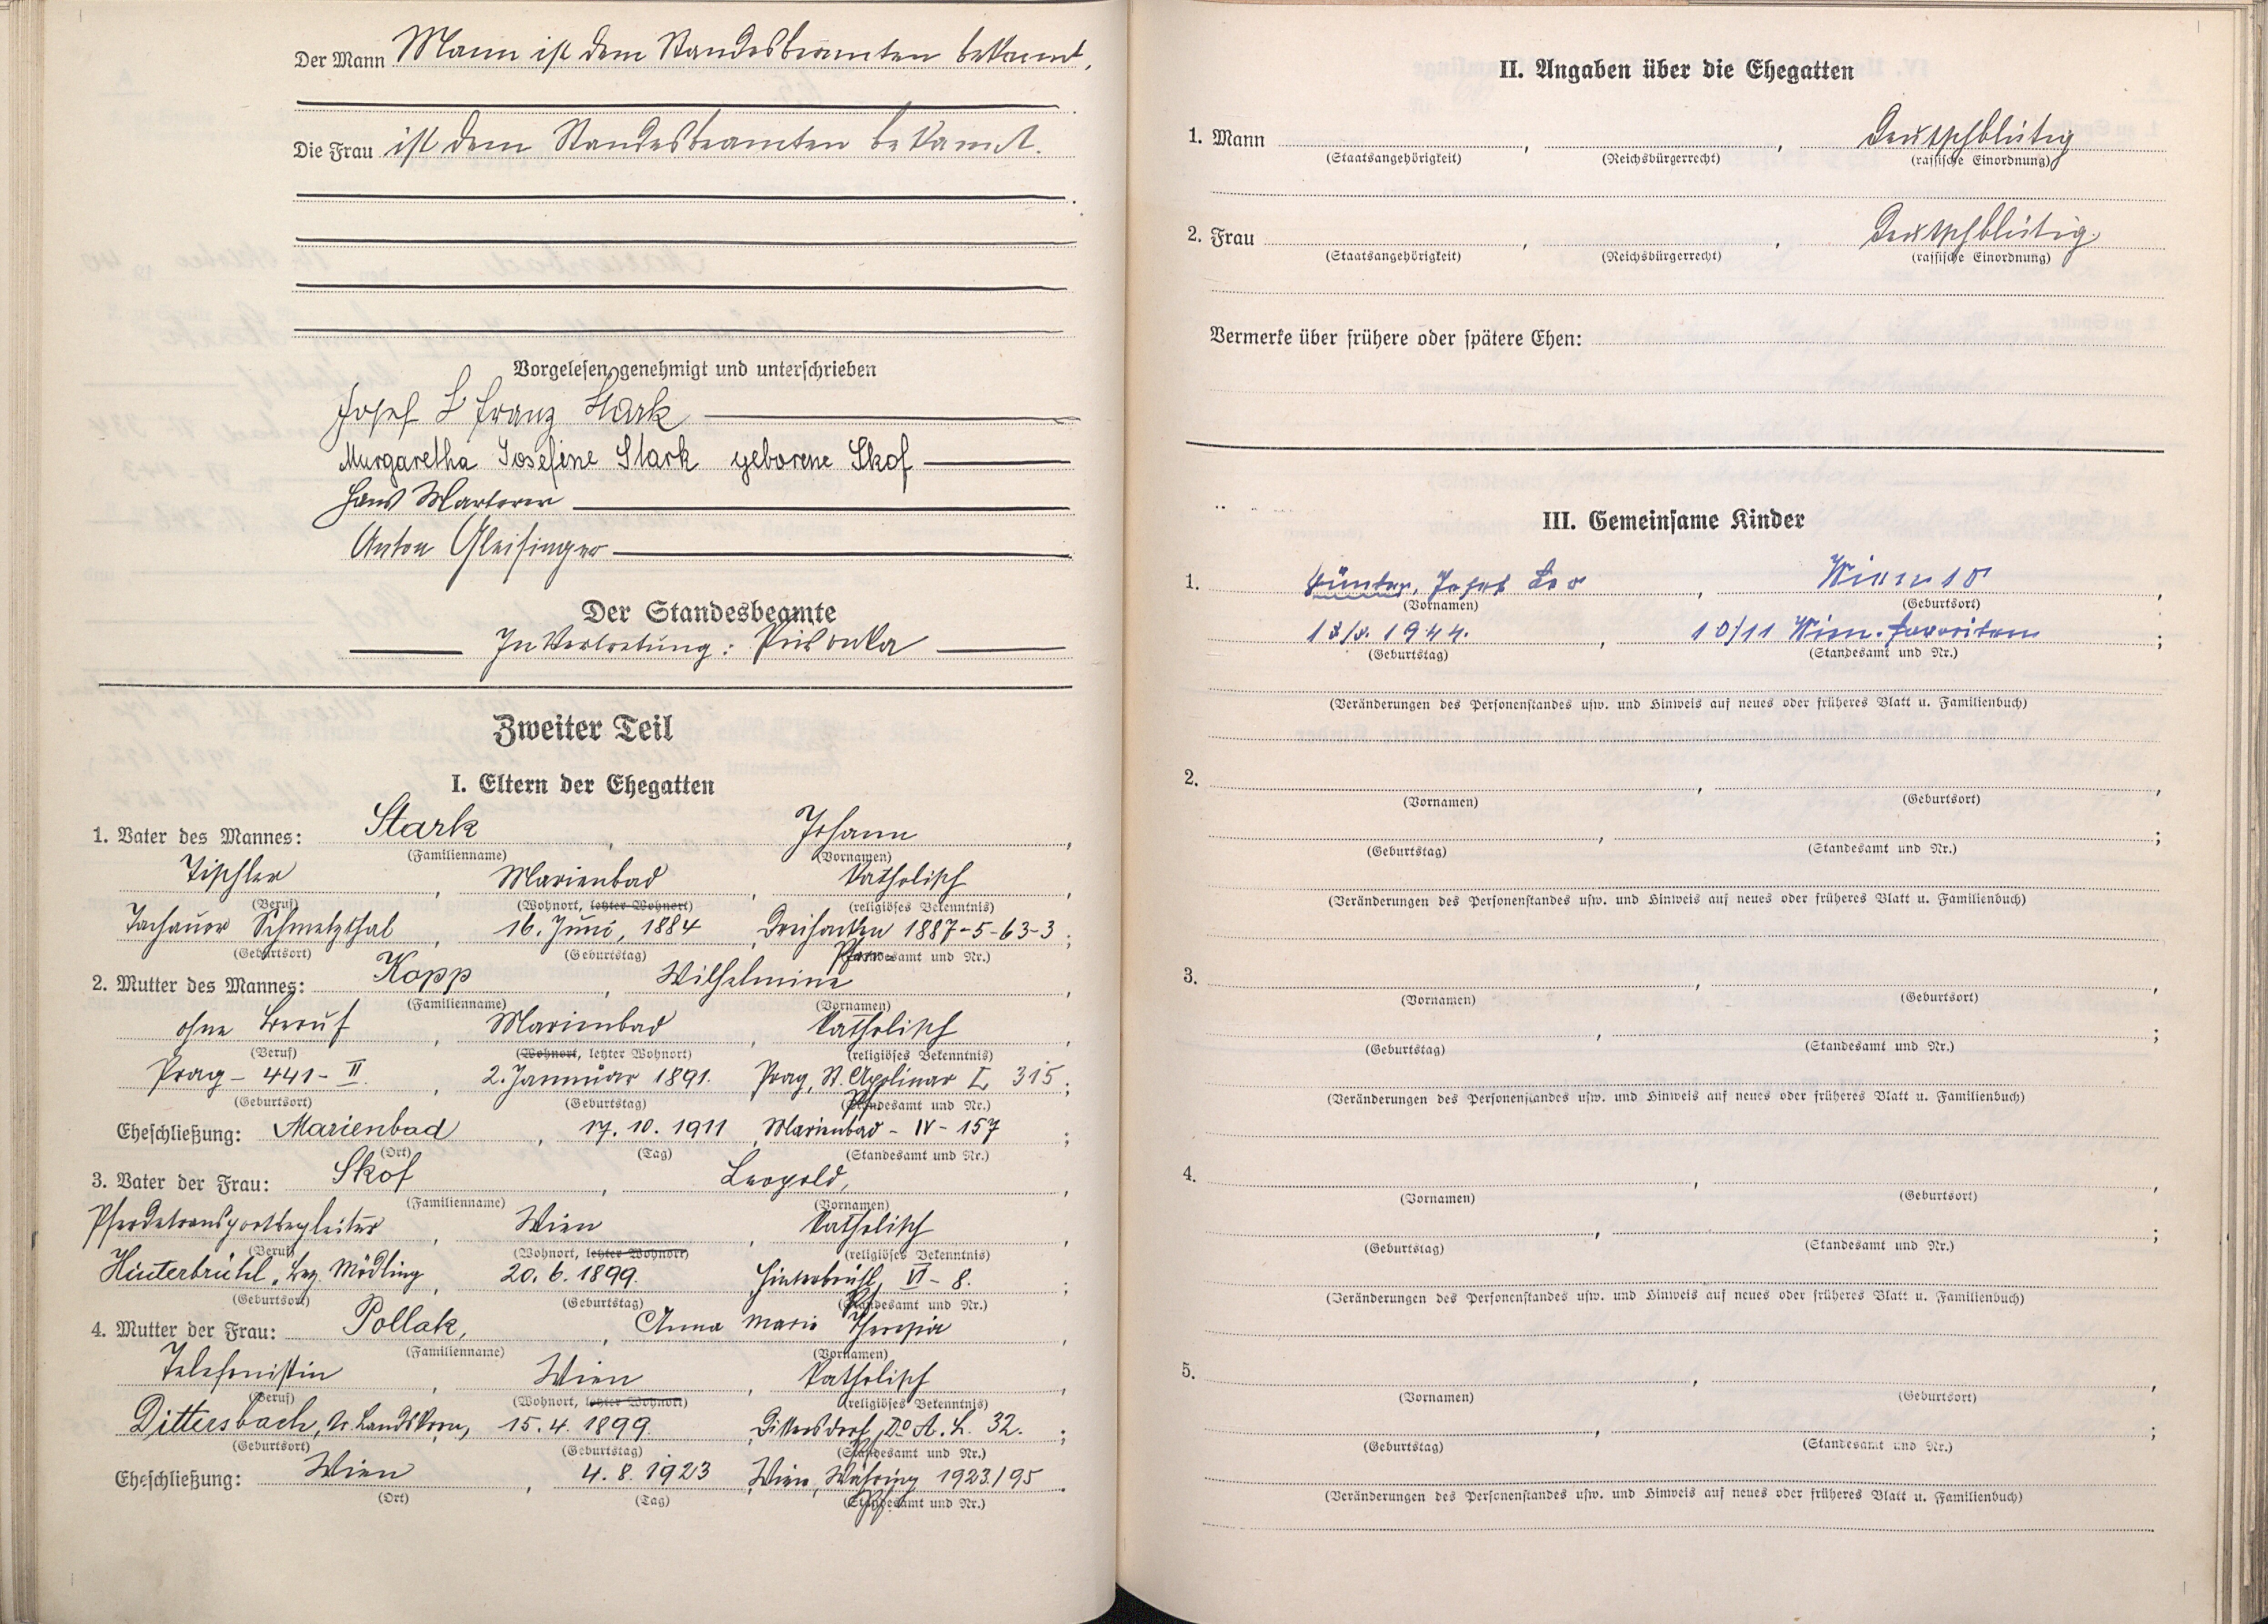 Der Mann Mann ist dem Standesbeamten bekannt.
Die Frau ist dem Standesbeamten bekannt.
Vorgelesen, genehmigt und unterschrieben
Josef L Franz Stark
Margaretha Josefine Stark geborene Skof
Hans Marterer
Anton Gleisinger
Der Standesbeamte
In Vertretung:
Zweiter Teil
I. Eltern der Ehegatten
1. Vater des Mannes: Stark, Johann,
(Familienname) (Vornamen)
Tischler, Marienbad, katholisch,
(Beruf) (Wohnort, letzter Wohnort) (religiöses Bekenntnis)
Tachauer Schmelzthal, 16. Juni, 1884, Dreihacken 1887-5-63-3;
(Geburtsort) (Geburtstag) (Standesamt und Nr.)
2. Mutter des Mannes: Kopp, Wilhelmine,
(Familienname) (Vornamen)
ohne Beruf, Marienbad, katholisch,
(Beruf) (Wohnort, letzter Wohnort) (religiöses Bekenntnis)
Prag - 441 - II., 2. Jannuar 1891. Prag, St. Apolinar L 315;
(Geburtsort) (Geburtstag) (Standesamt und Nr.)
Eheschließung: Marienbad, 17. 10. 1911, Marienbad - IV - 157;
(Ort) (Tag) (Standesamt und Nr.)
3. Vater der Frau: Skof, Leopold,
(Familienname) (Vornamen)
Pferdetransportbegleiter, Wien, katholisch,
(Beruf) (Wohnort, letzter Wohnort) (religiöses Bekenntnis)
Hinterbrühl, Bez. Mödling, 20. 6. 1899. Hinterbrühl, VI - 8.;
(Geburtsort) (Geburtstag) (Standesamt und Nr.)
4. Mutter der Frau: Pollak, Anna Marie Theresia,
(Familienname) (Vornamen)
Telefonistin, Wien, katholisch,
(Beruf) (Wohnort, letzter Wohnort) (religiöses Bekenntnis)
Dittersbach, Kr. Landskron, 15. 4. 1899. Dittersdorf, 32.;
(Geburtsort) (Geburtstag) (Standesamt und Nr.)
Eheschließung: Wien, 4. 8. 1923, Wien, Währing 1923/95.
(Ort) (Tag) (Standesamt und Nr.)
II. Angaben über die Ehegatten
1. Mann, , Deutschblütig
(Staatsangehörigkeit) (Reichsbürgerrecht) (rassische Einordnung)
2. Frau, , Deutschblütig.
(Staatsangehörigkeit) (Reichsbürgerrecht) (rassische Einordnung)
Vermerke über frühere oder spätere Ehen:
III. Gemeinsame Kinder
1. Günter, Josef Leo, Wien 10,
(Vornamen) (Geburtsort)
1944., 10/11 Wien-Favoriten;
(Geburtstag) (Standesamt und Nr.)
(Veränderungen des Personenstandes usw. und Hinweis auf neues oder früheres Blatt u. Familienbuch)
2. , ,
(Vornamen) (Geburtsort)
, ;
(Geburtstag) (Standesamt und Nr.)
(Veränderungen des Personenstandes usw. und Hinweis auf neues oder früheres Blatt u. Familienbuch)
3. , ,
(Vornamen) (Geburtsort)
, ;
(Geburtstag) (Standesamt und Nr.)
(Veränderungen des Personenstandes usw. und Hinweis auf neues oder früheres Blatt u. Familienbuch)
4. , ,
(Vornamen) (Geburtsort)
, ;
(Geburtstag) (Standesamt und Nr.)
(Veränderungen des Personenstandes usw. und Hinweis auf neues oder früheres Blatt u. Familienbuch)
5. , ,
(Vornamen) (Geburtsort)
, ;
(Geburtstag) (Standesamt und Nr.)
(Veränderungen des Personenstandes usw. und Hinweis auf neues oder früheres Blatt u. Familienbuch)